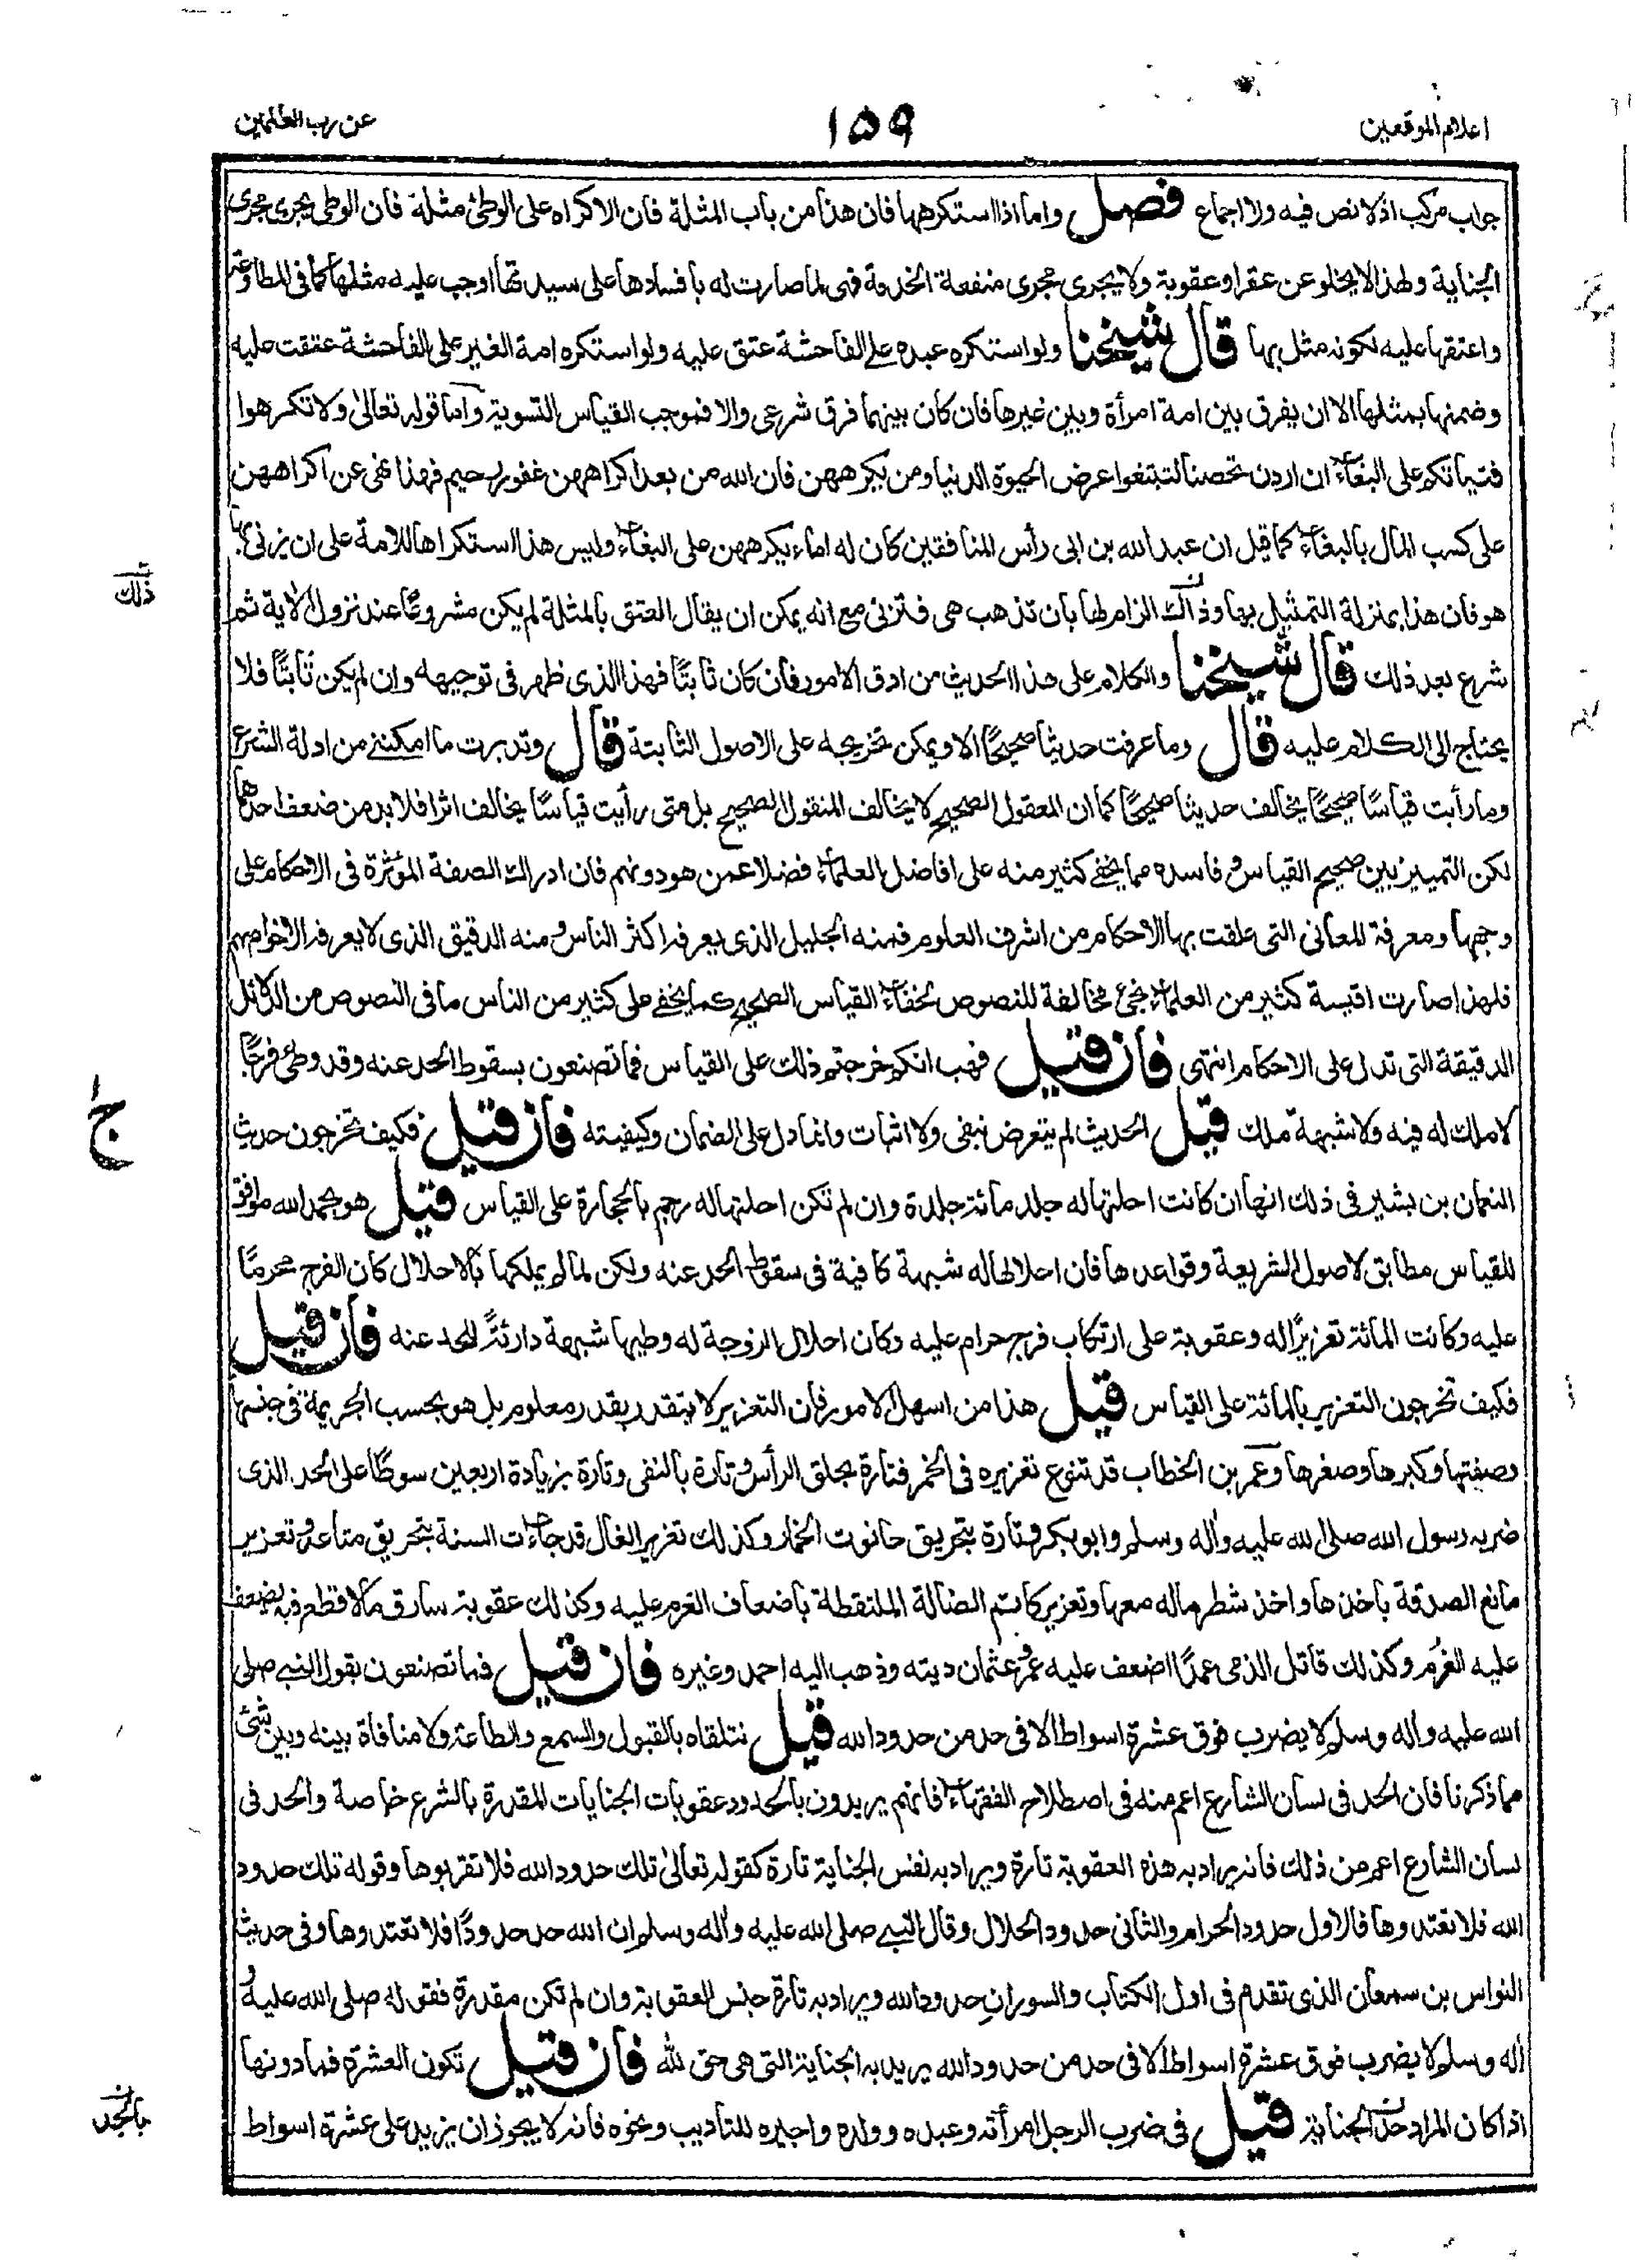 اعلام الموقعين
١٥٩
عن رب العلمين
جواب مركب اذ لا نص فيه ولا اجماع فصل واما اذا استكرهها فان هذا من باب المثلة فان الاكراه على الوطئ مثلة فان الوطى يجرى مجرى
الجناية ولهذا لا يخلو عن عقر او عقوبة ولا يجرى مجرى منفعة الخدمة فهى لما صارت له بافسادها على سيدتها اوجب عليه مثلها كما فى المطاوعة
واعتقها عليه لكونه مثل بها قال شيخنا ولو استكره عبده على الفاحشة عتق عليه ولو استكره امة الغير على الفاحشة عتقت عليه
وضمنها بمثلها الا ان يفرق بين امة امرأة وبين غيرها فان كان بينهما فرق شرعى والا فموجب القياس التسوية واما قوله تعالىٰ ولا تكرهوا
فتياتكم على البغاء ان اردن تحصنا لتبتغوا عرض الحيوة الدنيا ومن يكرههن فان الله من بعد اكراههن غفور رحيم فهذا نهى عن اكراههن
على كسب المال بالبغاء كما قيل ان عبد الله بن ابى رأس المنافقين كان له اماء يكرههن على البغاء وليس هذا استكراها للامة على ان يزنى بها
هو فان هذا بمنزلة التمثيل بها وذاك الزام لها بان تذهب هى فتزنى مع انه يمكن ان يقال العتق بالمثلة لم يكن مشروعًا عند نزول الاية ثم
شرع بعد ذلك قال شيخنا والكلام على هذا الحديث من ادق الامور فان كان ثابتًا فهذا الذى ظهر فى توجيهه وان لم يكن ثابتًا فلا
يحتاج الى الكلام عليه قال وما عرفت حديثا صحيحًا الا ويمكن تخريجه على الاصول الثابتة قال وتدبرت ما امكننى من ادلة الشرع
وما رأيت قياسًا صحيحًا يخالف حديثا صحيحًا كما ان المعقول الصحيح لا يخالف المنقول الصحيح بل متى رأيت قياسًا يخالف اثرا فلا بد من ضعف احدهما
لكن التمييز بين صحيح القياس وفاسده مما يخفى كثير منه على افاضل العلماء فضلا عمن هو دونهم فان ادراك الصفة المؤثرة فى الاحكام على
وجهها ومعرفة المعانى التى علقت بها الاحكام من اشرف العلوم فمنه الجليل الذى يعرفه اكثر الناس ومنه الدقيق الذى لا يعرفه الا خواصهم
فلهذا صارت اقيسة كثير من العلماء تجئ مخالفة للنصوص لخفاء القياس الصحيح كما يخفى على كثير من الناس ما فى النصوص من الدلائل
الدقيقة التى تدل على الاحكام انتهى فان قيل فهب انكم خرجتم ذلك على القياس فما تصنعون بسقوط الحد عنه وقد وطئ فرجًا
لا ملك له فيه ولا شبهة ملك قيل الحديث لم يتعرض بنفى ولا اثبات وانما دل على الضمان وكيفيته فان قيل فكيف تخرجون حديث
النعمان بن بشير فى ذلك انها ان كانت احلتها له جلد مائة جلدة وان لم تكن احلتها له رجم بالحجارة على القياس قيل هو بحمد الله موافق
للقياس مطابق لاصول الشريعة وقواعدها فان احلالها له شبهة كافية فى سقوط الحد عنه ولكن لما لم يملكها بالاحلال كان الفرج محرمًا
عليه وكانت المائة تعزيرًا له وعقوبة على ارتكاب فرج حرام عليه وكان احلال الزوجة له وطيها شبهة دارئةً للحد عنه فان قيل
فكيف تخرجون التعزير بالمائة على القياس قيل هذا من اسهل الامور فان التعزير لا يتقدر بقدر معلوم بل هو بحسب الجريمة فى جنسها
وصفتها وكبرها وصغرها وعمر بن الخطاب قد تنوع تعزيره فى الخمر فتارة بحلق الرأس وتارة بالنفى وتارة بزيادة اربعين سوطًا على الحد الذى
ضربه رسول الله صلى الله عليه واٰله وسلم وابو بكر وتارة بتحريق حانوت الخمار وكذلك تعزير الغال قد جاءت السنة بتحريق متاعه وتعزير
مانع الصدقة باخذها واخذ شطر ماله معها وتعزير كاتم الضالة الملتقطة باضعاف الغرم عليه وكذلك عقوبة سارق مالا قطع فيه يضعف
عليه الغُرم وكذلك قاتل الذمى عمدًا اضعف عليه عمر وعثمان ديته وذهب اليه احمد وغيره فان قيل فما تصنعون بقول النبى صلى
الله عليه واله وسلم لا يضرب فوق عشرة اسواط الا فى حد من حدود الله قيل نتلقاه بالقبول والسمع والطاعة ولا منافاة بينه وبين شئ
مما ذكرنا فان الحد فى لسان الشارع اعم منه فى اصطلاح الفقهاء فانهم يريدون بالحدود عقوبات الجنايات المقدرة بالشرع خاصة والحد فى
لسان الشارع اعم من ذلك فانه يراد به هذه العقوبة تارة ويراد به نفس الجناية تارة كقوله تعالىٰ تلك حدود الله فلا تقربوها وقوله تلك حدود
الله فلا تعتدوها فالاول حدود الحرام والثانى حدود الحلال وقال النبى صلى الله عليه واٰله وسلم ان الله حد حدودًا فلا تعتدوها وفى حديث
النواس بن سمعان الذى تقدم فى اول الكتاب والسوران حدود الله ويراد به تارة جنس العقوبة وان لم تكن مقدرة فقوله صلى الله عليه و
اٰله وسلم لا يضرب فوق عشرة اسواط الا فى حد من حدود الله يريد به الجناية التى هى حق لله فان قيل تكون العشرة فما دونها
اذا كان المراد حد الجناية قيل فى ضرب الرجل امرأته وعبده وولده واجيره للتاديب ونحوه فانه لا يجوز ان يزيد على عشرة اسواط
ذلك
بالحد